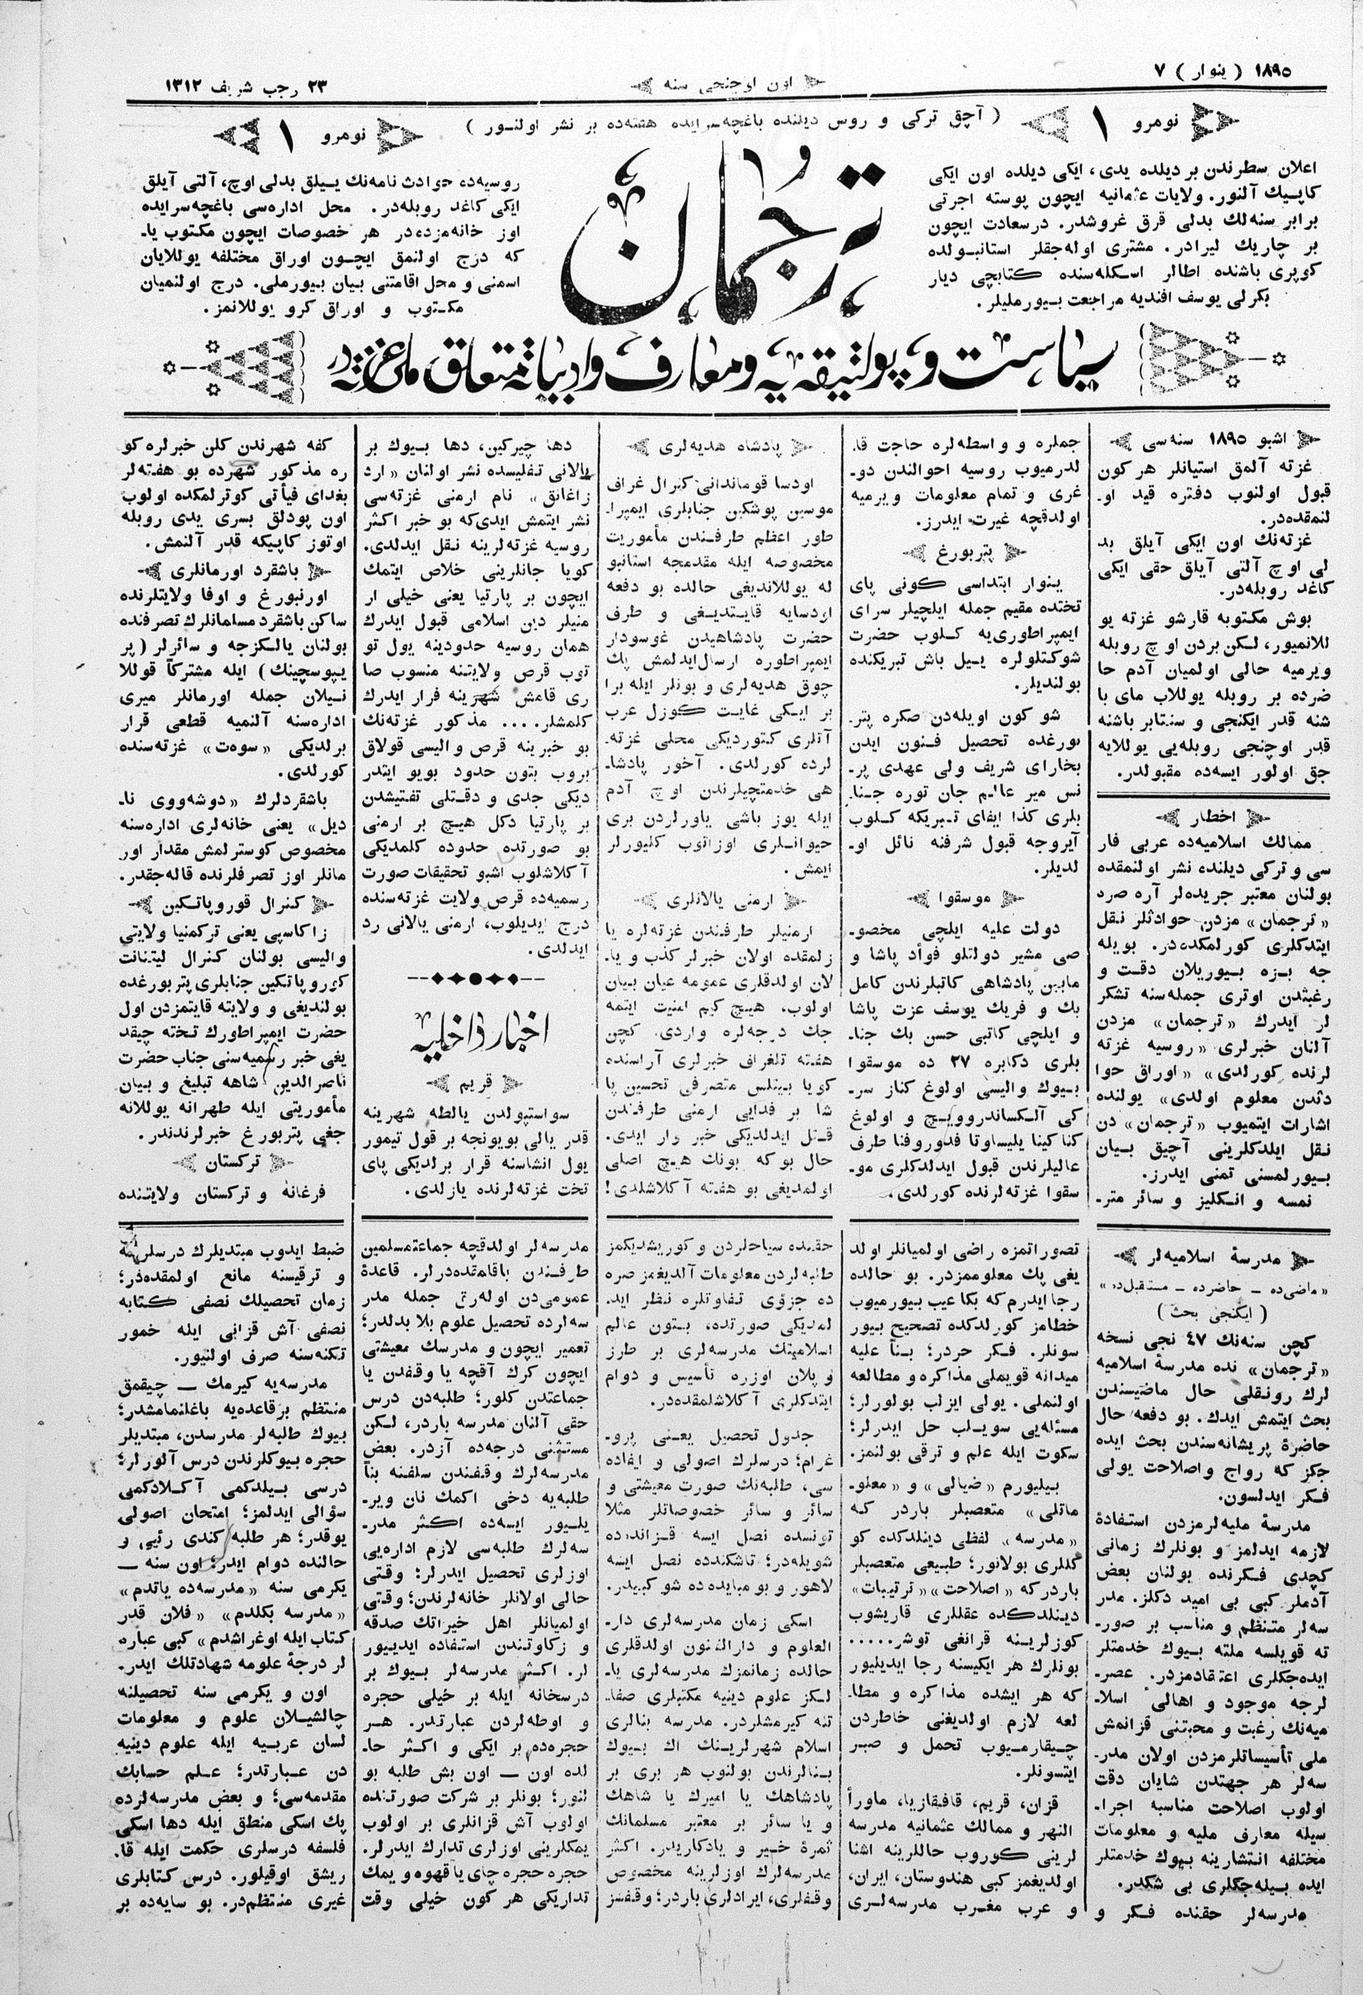 ١٨٩٥ ( ینوار ) ٧
اون اوچنجی سنه
٢٣ رجب شریف ١٣١٢
نومرو ١
( آچق ترکی و روس دیلنده باغچه‌سرایده هفته‌ده بر نشر اولنور )
نومرو ١
اعلان سطرندن بر دیلده یدی، ایکی دیلده اون ایکی
کاپیك آلنور. ولایات عثمانیه ایچون پوسته اجرتی
برابر سنه‌لك بدلی قرق غروشدر. درسعادت ایچون
بر چاریك لیرادر. مشتری اوله‌جقلر استانبولده
کوپری باشنده اطالر اسکله‌سنده کتابچی دیار
بکرلی یوسف افندیه مراجعت بیورملیلر.
ترجمان
روسیه‌ده حوادث نامه‌نك ییلق بدلی اوچ، آلتی آیلق
ایکی کاغد روبله‌در. محل اداره‌سی باغچه سرایده
اوز خانه‌مزده‌در هر خصوصات ایچون مکتوب یا-
که درج اولنمق ایچون اوراق مختلفه یوللایان
اسمنی و محل اقامتنی بیان بیورملی. درج اولنمیان
مکتوب و اوراق کرو یوللانمز.
سیاست و پولتیقه‌یه و معارف و ادبیاته متعلق ملی غزیته‌در
اشبو ١٨٩٥ سنه‌سی
غزته آلمق استیانلر هر کون
قبول اولنوب دفتره قید او-
لنمقده‌در.
غزته‌نك اون ایکی آیلق بد
لی اوچ آلتی آیلق حقی ایکی
کاغد روبله‌در.
بوش مکتوبه قارشو غزته یو
للانمیور، لکن بردن اوچ روبله
ویرمیه حالی اولمیان آدم حا
ضرده بر روبله یوللاب مای با
شنه قدر ایکنجی و سنتابر باشنه
قدر اوچنجی روبله‌یی یوللایه
جق اولور ایسه‌ده مقبولدر.
اخطار
ممالك اسلامیه‌ده عربی فار
سی و ترکی دیلنده نشر اولنمقده
بولنان معتبر جریده‌لر آره صره
«ترجمان» مزدن حوادثلر نقل
ایتدکلری کورلمکده‌در. بویله
جه بزه بیوریلان دقت و
رغبتدن اوتری جمله‌سنه تشکر
لر ایدرك «ترجمان» مزدن
آلنان خبرلری «روسیه غزته
لرنده کورلدی» «اوراق حوا
دثدن معلوم اولدی» یولنده
اشارات ایتمیوب «ترجمان» دن
نقل ایلدکلرینی آچیق بیان
بیورلمسنی تمنی ایدرز.
نمسه و انکلیز و سائر متر-
جملره و واسطه‌لره حاجت قا
لدرمیوب روسیه احوالندن دو-
غری و تمام معلومات ویرمیه
اولدقچه غیرت ایدرز.
پتربورغ
ینوار ابتداسی کونی پای
تختده مقیم جمله ایلچیلر سرای
ایمپراطوری‌یه کلوب حضرت
شوکتلولره ییل باش تبریکنده
بولندیلر.
شو کون اویله‌دن صکره پتر-
بورغده تحصیل فنون ایدن
بخارای شریف ولی عهدی پر-
نس میر عالم جان توره جنا-
بلری کذا ایفای تبریکه کلوب
آیروجه قبول شرفنه نائل او-
لدیلر.
موسقوا
دولت علیه ایلچی مخصو-
صی مشیر دولتلو فوأد پاشا و
مابین پادشاهی کاتبلرندن کامل
بك و فریك یوسف عزت پاشا
و ایلچی کاتبی حسن بك جنا-
بلری دکابره ٢٧ ده موسقوا
بیوك والیسی اولوغ کناز سر-
کی آلکساندروویچ و اولوغ
کناکینا یلیساوتا فدوروفنا طرف
عالیلرندن قبول ایدلدکلری مو-
سقوا غزته‌لرنده کورلدی.
پادشاه هدیه‌لری
اودسا قوماندانی کنرال غراف
موسین پوشکین جنابلری ایمپرا-
طور اعظم طرفندن مأموریت
مخصوصه ایله مقدمجه استانبو
له یوللاندیغی حالده بو دفعه
اودسایه قایتدیغی و طرف
حضرت پادشاهیدن غوسودار
ایمپراطوره ارسال‌ایدلمش پك
چوق هدیه‌لری و بونلر ایله برا
بر ایکی غایت کوزل عرب
آتلری کتوردیکی محلی غزته-
لرده کورلدی. آخور پادشا-
هی خدمتچیلرندن اوچ آدم
ایله یوز باشی یاورلردن بری
حیوانلری اوزاتوب کلیورلر
ایمش.
ارمنی یالانلری
ارمنیلر طرفندن غزته‌لره یا
زلمقده اولان خبرلر کذب و یا-
لان اولدقلری عمومه عیان بیان
اولوب، هیچ کیم امنیت ایتمه
جك درجه‌لره واردی. کچن
هفته تلغراف خبرلری آراسنده
کویا بیتلس متصرفی تحسین پا
شا بر فدایی ارمنی طرفندن
قتل ایدلدیکی خبر وار ایدی.
حال بو که بونك هیچ اصلی
اولمدیغی بو هفته آکلاشلدی!
دها چیرکین، دها بیوك بر
یالانی تفلیسده نشر اولنان «ارد
زاغانق» نام ارمنی غزته‌سی
نشر ایتمش ایدی‌که بو خبر اکثر
روسیه غزته‌لرینه نقل ایدلدی.
کویا جانلرینی خلاص ایتمك
ایچون بر پارتیا یعنی خیلی ار
منیلر دین اسلامی قبول ایدرك
همان روسیه حدودینه یول تو
توب قرص ولایتنه منسوب صا
ری قامش شهرینه فرار ایدرك
کلمشلر.... مذکور غزته‌نك
بو خبرینه قرص والیسی قولاق
بروب بتون حدود بویو ایتدر
دیکی جدی و دقتلی تفتیشدن
بر پارتیا دکل هیچ بر ارمنی
بو صورتده حدوده کلمدیکی
آکلاشلوب اشبو تحقیقات صورت
رسمیه‌ده قرص ولایت غزته‌سنده
درج ایدیلوب، ارمنی یالانی رد
ایدلدی.
اخبار داخلیه
قریم
سواستپولدن یالطه شهرینه
قدر یالی بویونجه بر قول تیمور
یول انشاسنه قرار برلدیکی پای
تخت غزته‌لرنده یازلدی.
کفه شهرندن کلن خبرلره کو
ره مذکور شهرده بو هفته‌لر
بغدای فیأتی کوترلمکده اولوب
اون پودلق بسری یدی روبله
اوتوز کاپیکه قدر آلنمش.
باشقرد اورمانلری
اورنبورغ و اوفا ولایتلرنده
ساکن باشقرد مسلمانلرك تصرفنده
بولنان یالکزجه و سائرلر (پر
یپوسچینك) ایله مشترکاً قوللا
نیلان جمله اورمانلر میری
اداره‌سنه آلنمیه قطعی قرار
برلدیکی «سوه‌ت» غزته‌سنده
کورلدی.
باشقردلرك «دوشه‌ووی نا-
دیل» یعنی خانه‌لری اداره‌سنه
مخصوص کوسترلمش مقدار اور
مانلر اوز تصرفلرنده قاله‌جقدر.
کنرال قوروپاتکین
زاکاسپی یعنی ترکمنیا ولایتی
والیسی بولنان کنرال لیتنانت
کوروپاتکین جنابلری پتربورغده
بولندیغی و ولایته قایتمزدن اول
حضرت ایمپراطورك تخته چیقد
یغی خبر رسمیه‌سنی جناب حضرت
ناصر الدین شاهه تبلیغ و بیان
مأموریتی ایله طهرانه یوللانه
جغی پتربورغ خبرلرندندر.
ترکستان
فرغانه و ترکستان ولایتنده
مدرسهٔ اسلامیه‌لر
«ماضی‌ده — حاضرده — مستقبل‌ده»
( ایکنجی بحث )
کچن سنه‌نك ٤٧ نجی نسخه
«ترجمان» نده مدرسهٔ اسلامیه
لرك رونقلی حال ماضیسندن
بحث ایتمش ایدك. بو دفعه حال
حاضرهٔ پریشانه‌سندن بحث ایده
جکز که رواج و اصلاحت یولی
فکر ایدلسون.
مدرسهٔ ملیه‌لرمزدن استفادهٔ
لازمه ایدلمز و بونلرك زمانی
کچدی فکرنده بولنان بعض
آدملر کبی بی امید دکلز. مدر
سه‌لر منتظم و مناسب بر صور-
ته قویلسه ملته بیوك خدمتلر
ایده‌جکلری اعتقادمزدر. عصر-
لرجه موجود و اهالیٔ اسلا-
میه‌نك رغبت و محبتنی قزانمش
ملی تأسیساتلرمزدن اولان مدر-
سه‌لر هر جهتدن شایان دقت
اولوب اصلاحت مناسبه اجرا-
سیله معارف ملیه و معلومات
مختلفه انتشارینه بیوك خدمتلر
ایده بیله‌جکلری بی شکدر.
مدرسه‌لر حقنده فکر و
تصوراتمزه راضی اولمیانلر اولد
یغی پك معلوممزدر. بو حالده
رجا ایدرم که بکا عیب بیورمیوب
خطامز کورلدکده تصحیح بیور
سونلر. فکر حردر؛ بناً علیه
میدانه قویملی مذاکره و مطالعه
اولنملی. یولی ایزلب بولورلر؛
مسئله‌یی سویلب حل ایدرلر؛
سکوت ایله علم و ترقی بولنمز.
بیلیورم «ضیالی» و «معلو-
ماتلی» متعصبلر باردر که
«مدرسه» لفظی دینلدکده کو
کللری بولانور؛ طبیعی متعصبلر
باردرکه «اصلاحت» «ترتیبات»
دینلدکده عقللری قاریشوب
کوزلرینه قرانغی توشر.....
بونلرك هر ایکیسنه رجا ایدیلیور
که هر ایشده مذاکره و مطا-
لعه لازم اولدیغنی خاطردن
چیقارمیوب تحمل و صبر
ایتسونلر.
قزان، قریم، قافقازیا، ماورأ
النهر و ممالك عثمانیه مدرسه
لرینی کوروب حاللرینه اشنا
اولدیغمز کبی هندوستان، ایران،
و عرب مغرب مدرسه‌لری
حقینده سیاحلردن و کوریشدیکمز
طلبه‌لردن معلومات آلدیغمز صره
ده جزؤی تفاوتلره نظر اید-
لمدیکی صورتده، بتون عالم
اسلامیتك مدرسه‌لری بر طرز
و پلان اوزره تأسیس و دوام
ایتدکلری آکلاشلمقده‌در.
جدول تحصیل یعنی پرو-
غرام؛ درسلرك اصولی و افاده
سی، طلبه‌نك صورت معیشتی و
سائر و سائر خصوصاتلر مثلا
تونسده نصل ایسه قزانده‌ده
شویله‌در؛ تاشکنده نصل ایسه
لاهور و بومبایده ده شو کبیدر.
اسکی زمان مدرسه‌لری دار-
العلوم و دارالفنون اولدقلری
حالده زمانمزك مدرسه‌لری یا-
لکز علوم دینیه مکتبلری صفا-
تنه کیرمشلردر. مدرسه بنالری
اسلام شهرلرینك اك بیوك
بنالرندن بولنوب هر بری بر
پادشاهك یا امیرك یا شاهك
و یا سائر بر معتبر مسلمانك
ثمرهٔ خیر و یادکاریدر. اکثر
مدرسه‌لرك اوزلرینه مخصوص
وقفلری، ایرادلری باردر؛ وقفسز
مدرسه‌لر اولدقچه جماعتمسلمین
طرفندن باقلمقده‌درلر. قاعدهٔ
عمومی‌دن اوله‌رق جمله مدر
سه‌لرده تحصیل علوم بلا بدلدر؛
تعمیر ایچون و مدرسك معیشتی
ایچون کرك آقچه یا وقفدن یا
جماعتدن کلور؛ طلبه‌دن درس
حقی آلنان مدرسه باردر، لکن
مستثنی درجه‌ده آزدر. بعض
مدرسه‌لرك وقفندن سلفنه بنأ
طلبه‌یه دخی اکمك نان ویر-
یلیور ایسه‌ده اکثر مدر-
سه‌لرك طلبه‌سی لازم اداره‌یی
اوزلری تحصیل ایدرلر؛ وقتی
حالی اولانلر خانه‌لرندن؛ وقتی
اولمیانلر اهل خیراتك صدقه
و زکاوتندن استفاده ایدییور
لر. اکثر مدرسه‌لر بیوك بر
درسخانه ایله بر خیلی حجره
و اوطه‌لردن عبارتدر. هر
حجره‌ده بر ایکی و اکثر حا-
لده اون — اون بش طلبه بو
لنور؛ بونلر بر شرکت صورتنده
اولوب آش قزانلری بر اولوب
یمکلرینی اوزلری تدارك ایدرلر.
حجره حجره چای یا قهوه و یمك
تداریکی هر کون خیلی وقت
ضبط ایدوب مبتدیلرك درسلرینه
و ترقیسنه مانع اولمقده‌در؛
زمان تحصیلك نصفی کتابه
نصفی آش قزانی ایله خمور
تکنه‌سنه صرف اولنیور.
مدرسه‌یه کیرمك — چیقمق
منتظم برقاعده‌یه باغلنمامشدر؛
بیوك طلبه‌لر مدرسدن، مبتدیلر
حجره بیوکلرندن درس آلورلر؛
درسی بیلدکمی آکلادکمی
سؤالی ایدلمز؛ امتحان اصولی
یوقدر؛ هر طلبه کندی رئیی و
حالنده دوام ایدر؛ اون سنه —
یکرمی سنه «مدرسه‌ده یاتدم»
«مدرسه بکلدم» «فلان قدر
کتاب ایله اوغراشدم» کبی عباره
لر درجهٔ علومه شهادتلك ایدر.
اون و یکرمی سنه تحصیلنه
چالشیلان علوم و معلومات
لسان عربیه ایله علوم دینیه
دن عبارتدر؛ علم حسابك
مقدمه‌سی؛ و بعض مدرسه‌لرده
پك اسکی منطق ایله دها اسکی
فلسفه درسلری حکمت ایله قا-
ریشق اوقیلور. درس کتابلری
غیری منتظم‌در. بو سایه‌ده بر